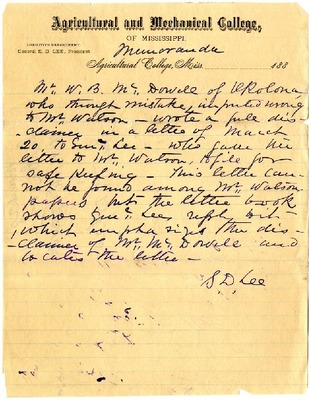 Agricultural and Mechanical College,
OF MISSISSIPPI.
EXECUTIVE DEPARTMENT.
General S. D. LEE, President
Memoranda
Agricultural College, Miss. 188
Mr. W. B. McDowell of Okolona
who through mistake, imputed wrong
to Mr. Watson - wrote a full dis-
-claimer in a letter of March
20, to Genl. Lee - who gave the
letter to Mr. Watson, to file for
safe keeping - This letter can-
not be found among Mr. Watson
papers, but the letter book
shows Genl. Lees reply to it -
which empha sizes the dis-
-claimer of Mr. McDowell and
locates the letter -
S D Lee